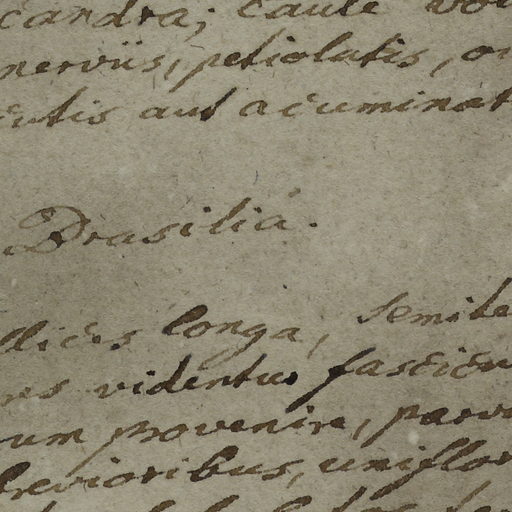 candra; caule vo
nerviis, petiolatis, o
cutis aut acuminat
Brasilia.
dices longa, semite
res videntur fascicu
um provenire, parv
brevioribus, uniflor